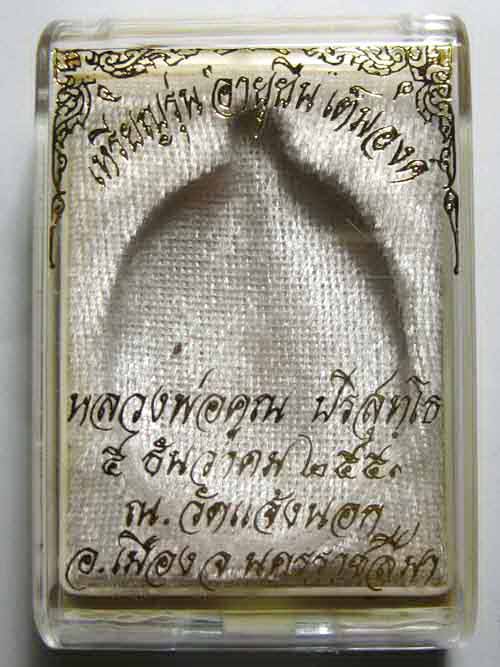 เหรียญรุ่น "อายุยืน เต็มองค์"
หลวงพ่อคูณ ปริสุทฺโธ
๕ ธันวาคม ๒๕๕๑
ณ. วัดแจ้งนอก
อ.เมือง จ.นครราชสีมา